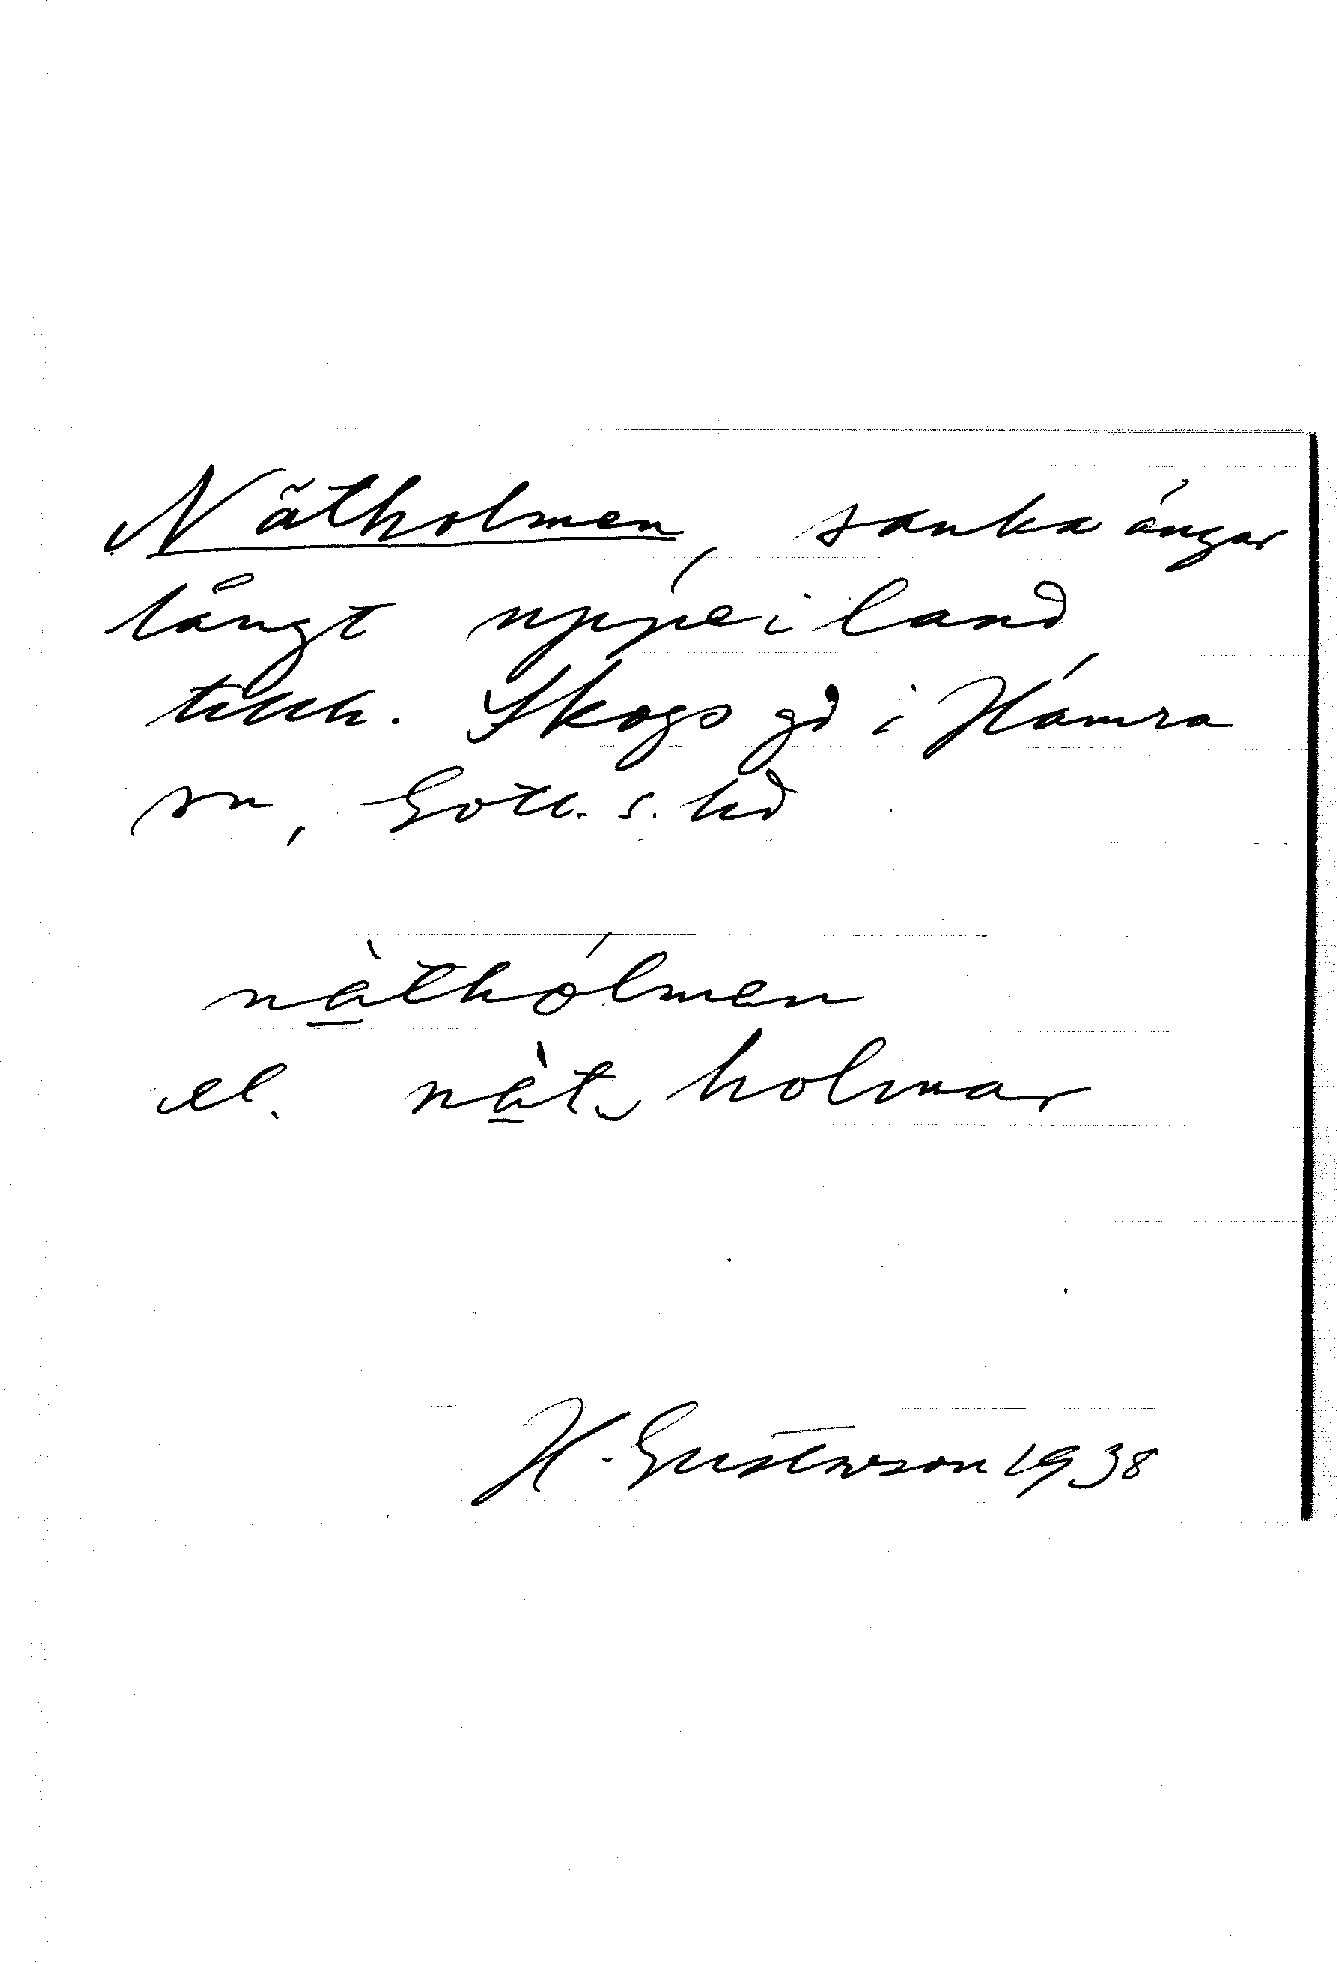 Nätholmen, sanka ängar
långt uppe i land
tillh. Skogs gd i Hamra
sn, Gotl. s. hd
nà̱thólmen
el. nà̱t holmar
H. Gustavson 1938